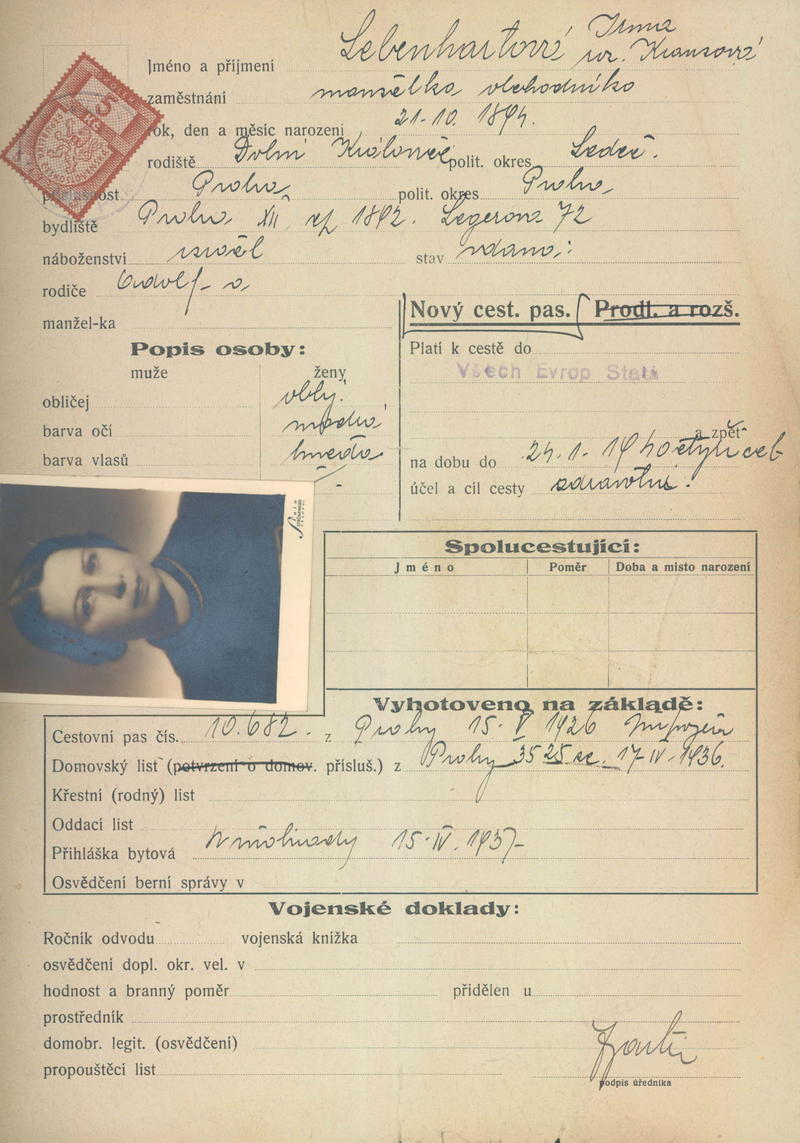 Jméno a příjmení Lebenhartová Irma
nr. Krausová
zaměstnání manželka obchodníka
rok, den a měsíc narození 21. 10. 1894.
rodiště Dolní Královice polit. okres Ledeč.
příslušnost Praha polit. okres Praha
bydliště Praha XII čp 1892. Legerova 72
náboženství israel stav vdaná
rodiče Rudolf a
manžel-ka
Nový cest. pas. Prodl. a rozš.
Popis osoby:
muže ženy
Platí k cestě do
Všech Evrop Států
obličej obly
barva očí modré
barva vlasů hnědá
a zpět
na dobu do 24. 1. 1940
účel a cíl cesty zdravotní
5
Spolucestující:
Jméno Poměr Doba a místo narození
Vyhotoveno na základě:
Cestovní pas čís. 10.682. z Prahy 15. V 1926
Domovský list (potvrzení o domov. přísluš.) z Prahy 17-IV-1936.
Křestní (rodný) list
Oddací list
Přihláška bytová 15-IV. 1937
Osvědčení berní správy v
Vojenské doklady:
Ročník odvodu vojenská knížka
osvědčení dopl. okr. vel. v
hodnost a branný poměr přidělen u
prostředník
domobr. legit. (osvědčení)
propouštěcí list
podpis úředníka